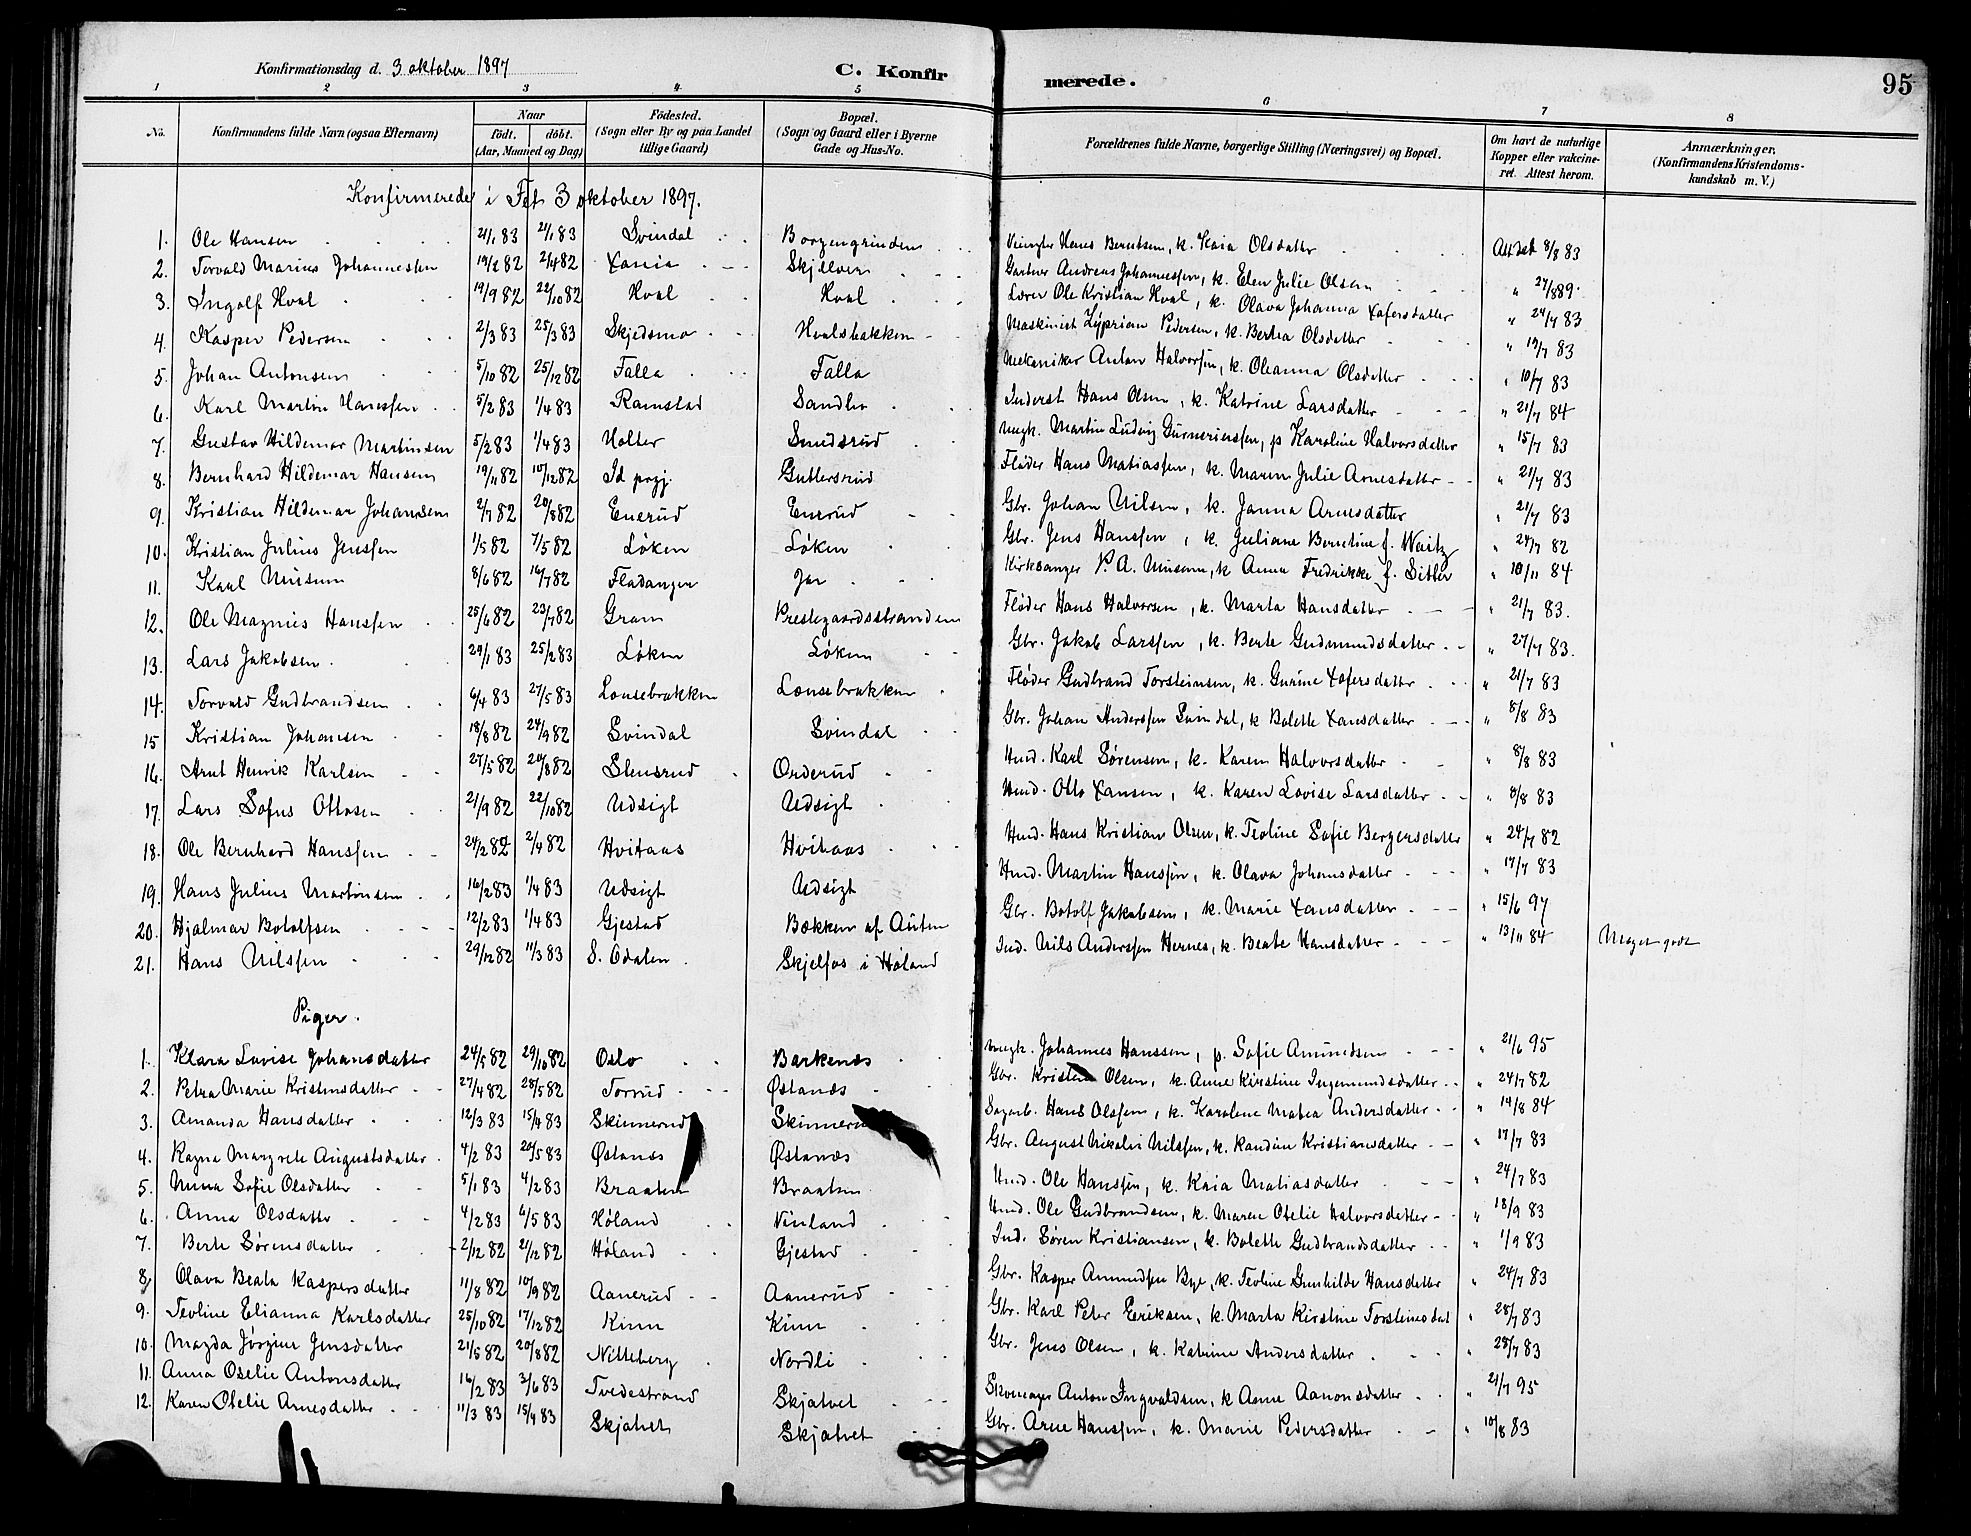 Konfirmationsdag d. 3 oktober 1897
C. Konfir merede. 95
1 2 3 4 5 6 7 8
No. Konfirmandens fulde Navn (ogsaa Efternavn) Naar født. døbt. (Aar, Maaned og Dag) Fødested. (Sogn eller By og paa Landet tillige Gaard) Bopæl. (Sogn og Gaard eller i Byerne Gade og Hus-No. Forældrenes fulde Navne, borgerlige Stilling (Næringsvei) og Bopæl. Om havt de naturlige Kopper eller vakcineret. Attest herom. Anmærkninger. (Konfirmandens Kristendomskundskab m. V.)
Konfirmerede i Fet 3 oktober 1897.
1. Ole Hansen 21/1 83 21/1 83 Svindal Borgengrinden Hans Berntsen, k. Kaia Olsdatter Attest 8/8 83
2. Torvald Marius Johannesen 19/2 82 2/4 82 Xania Skjelver Gartner Andreas Johannessen, k. Elen Julie Olsen " 27/8 89.
3. Ingolf Hval 19/9 82 22/10 82 Hval Hval Lærer Ole Kristian Hval, k. Olava Johanna Xafersdatter " 24/7 83
4. Kasper Pedersen 2/3 83 25/3 83 Skjedsmo Hvalsbakken Maskinist Zyprian Pedersen, k. Berthea Olsdatter " 19/7 83
5. Johan Antonsen 5/10 82 25/12 82 Falla Falla Mekaniker Anton Halvorsen, k. Oleanna Olsdatter " 10/7 83
6. Karl Martin Hanssen 5/2 83 1/4 83 Ramstad Sandlen Inderst Hans Olsen, k. Katrine Larsdatter " 21/7 84
7. Gustav Hildemar Martinsen 5/2 83 1/4 83 Holter Smedsrud Ungk. Martin Ludvig Gurneriussen, p Karoline Halvorsdatter " 15/7 83
8. Bernhard Hildemar Hansen 19/11 82 10/12 82 Id prgj. Guttersrud Fløder Hans Matiassen, k. Maren Julie Arnesdatter " 21/7 83
9. Kristian Hildemar Johansen 2/7 82 20/8 82 Enerud Enerud Gbr. Johan Nilsen, k. Janna Arnesdatter " 21/7 83
10. Kristian Julius Jenssen 1/5 82 7/5 82 Løken Løken Gbr. Jens Hanssen, k. Juliane Berntine f. Waitz " 24/7 82
11. Karl Musum 8/6 82 16/7 82 Fladanger Jar Kirksanger P. A. Musum, k Anna Fredrikke f. Sitter " 10/11 84
12. Ole Magnus Hanssen 25/6 82 23/7 82 Gram Prestegaardsstranden Fløder Hans Halvorsen, k. Marta Hansdatter " 21/7 83.
13. Lars Jakobsen 29/1 83 25/2 83 Løken Løken Gbr. Jakob Larssen, k. Berte Gudmundsdatter " 27/7 83.
14. Torvald Gudbrandsen 6/4 83 27/5 83 Lonsebrakken Lonsebrakken Fløder Gudbrand Torsteinsen, k. Gurine Xafersdatter " 21/7 83
15 Kristian Johansen 18/8 82 24/9 82 Svindal Svindal Gbr. Johan Anderssen Svindal, k Bolette Xansdatter " 8/8 83
16. Arnt Henrik Karlsen 27/5 82 20/8 82 Stensrud Orderud Hmd. Karl Sørensen, k. Karen Halvorsdatter " 8/8 83
17. Lars Sofus Ottosen 21/9 82 22/10 82 Udsigt Udsigt Hmd. Otto Xansen, k. Karen Lovise Larsdatter " 8/8 83
18. Ole Bernhard Hanssen 24/2 82 2/4 82 Hvitaas Hvitaas Hmd. Hans Kristian Olsen, k. Teoline Sofie Bergersdatter " 24/7 82
19. Hans Julius Martinsen 16/2 83 1/4 83 Udsigt Udsigt Hmd. Martin Hanssen, k. Olava Johansdatter " 17/7 83
20. Hjalmar Botolfsen 12/2 83 1/4 83 Gjestad Bakken af Auten Gbr. Botolf Jakobsen, k. Marie Xansdatter " 15/6 97
21. Hans Nilssen 29/12 82 11/3 83 S. Odalen Skjelfos i Høland Ind. Nils Anderssen Hernes, k. Beate Hansdatter " 13/11 84 Meget godt
Piger.
1. Klara Lovise Johansdatter 24/5 82 29/10 82 Oslo Barkenæs Ungk. Johannes Hanssen, p. Sofie Amundsen " 21/6 95
2. Petra Marie Kristensdatter 27/4 82 28/5 82 Torrud Østanæs Gbr. Kristen Olsen, k. Anne Kirstine Ingemundsdatter " 24/7 82
3. Amanda Hansdatter 12/3 83 15/4 83 Skinnerud Skinnerud Sagarb. Hans Olssen, k. Karolene Matea Andersdatter " 14/8 84
4. Ragna Margrete Augustsdatter 4/2 83 20/5 83 Østanæs Østanæs Gbr. August Nikolai Nilssen, k. Randine Kristiansdatter " 17/7 83
5. Mina Sofie Olsdatter 5/1 83 4/2 83 Braaten Braaten Hmd. Ole Hanssen, k. Kaia Matiasdatter " 24/7 83
6. Anna Olsdatter 4/2 83 6/5 83 Høland Vinland Hmd. Ole Gudbrandsen, k. Maren Otelie Halvorsdatter " 18/9 83
7. Berte Sørensdatter 2/12 82 2/12 82 Høland Gjestad Ind. Søren Kristiansen, k. Bolette Gudbrandsdatter " 1/9 83
8. Olava Beata Kaspersdatter 11/8 82 10/9 82 Aanerud Aanerud Gbr. Kasper Amundsen Bye, k. Teoline Gunhilde Hansdatter " 24/7 83
9. Teoline Elianna Karlsdatter 25/10 82 17/12 82 Kinn Kinn Gbr. Karl Peter Eriksen, k. Marta Kirstine Torsteinsdat " 28/7 83
10. Magda Jørgine Jensdatter 21/5 82 20/8 82 Nitteberg Nordli Gbr. Jens Olsen, k. Katrine Andersdatter " 28/7 83
11. Anna Oselie Antonsdatter 16/2 83 3/6 83 Tvedestrand Skjatvet Skomager Anton Ingvaldsen, k Anne Aanonsdatter " 21/7 95
12. Karen Otelie Arnesdatter 11/3 83 15/4 83 Skjatvet Skjatvet Gbr. Arne Hanssen, k. Marie Pedersdatter " 10/8 83